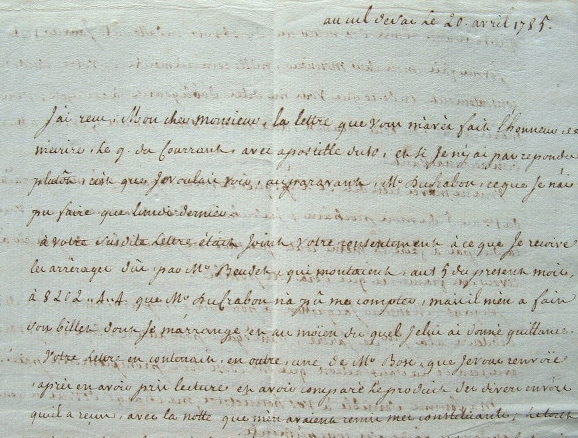 au cul de sac le 20. avril 1785.
J'ai reçu, Mon cher monsieur, la lettre que vous m'avés fait l'honneur de
m'ecrire, le 9. du Courrant, avec apostille du 10, et si Je n'y ai pas repondu
plutôt, c'est que Je voulais voir, auparavant, Mr. Ducrabon, ce que Je n'ai
pu faire que lundi dernier.
à votre susdite Lettre, était Joint votre consentement à ce que Je recoive
les arrérages dûs par Mr. , qui montaient, au 5 du present mois,
à 8202..4..4. que Mr. Ducrabon n'a pû me compter, mais il m'en a fait
son billet dont Je m'arrange et au moien du quel Je lui ai donné quittance.
Votre Lettre en contenait, en outre, une, de Mr. Bon, que Je vous renvoïe
après en avoir pris lecture et avoir comparé Le produit des divers envois
qu'il a reçus, avec la notte que m'en avaient remis mes